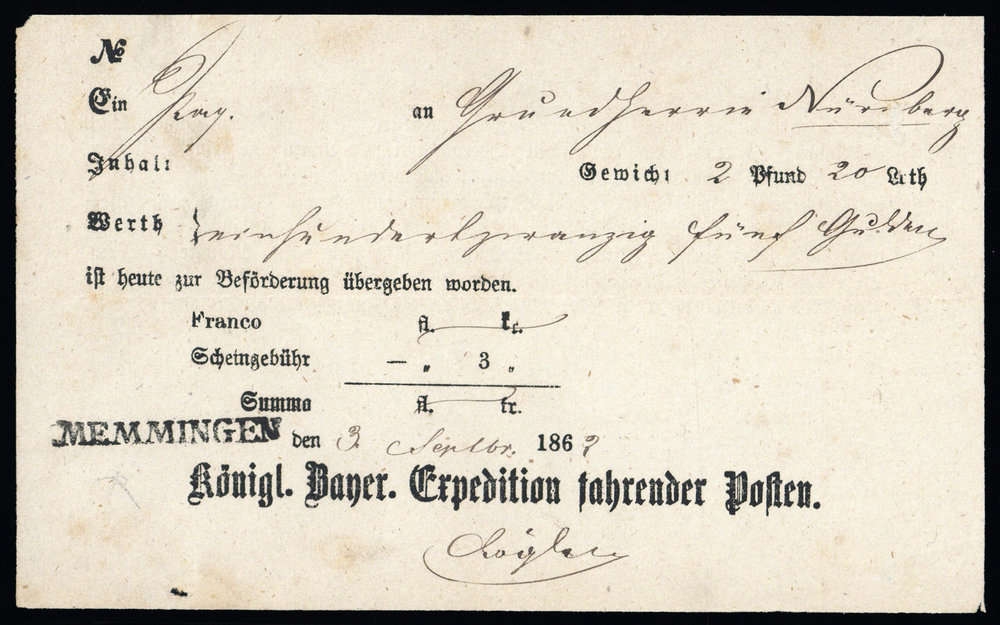 №
Ein Paq. an Grundherrn Nürnberg
Inhalt Gewicht 2 Pfund 20 Lth
Werth einhundertzwanzig fünf Gulden
ist heute zur Beförderung übergeben worden.
Franco fl. kr.
Scheingebühr — „ 3 „
Summa fl. kr.
MEMMINGEN den 3 Septbr. 186
Königl. Bayer. Expedition fahrender Posten.